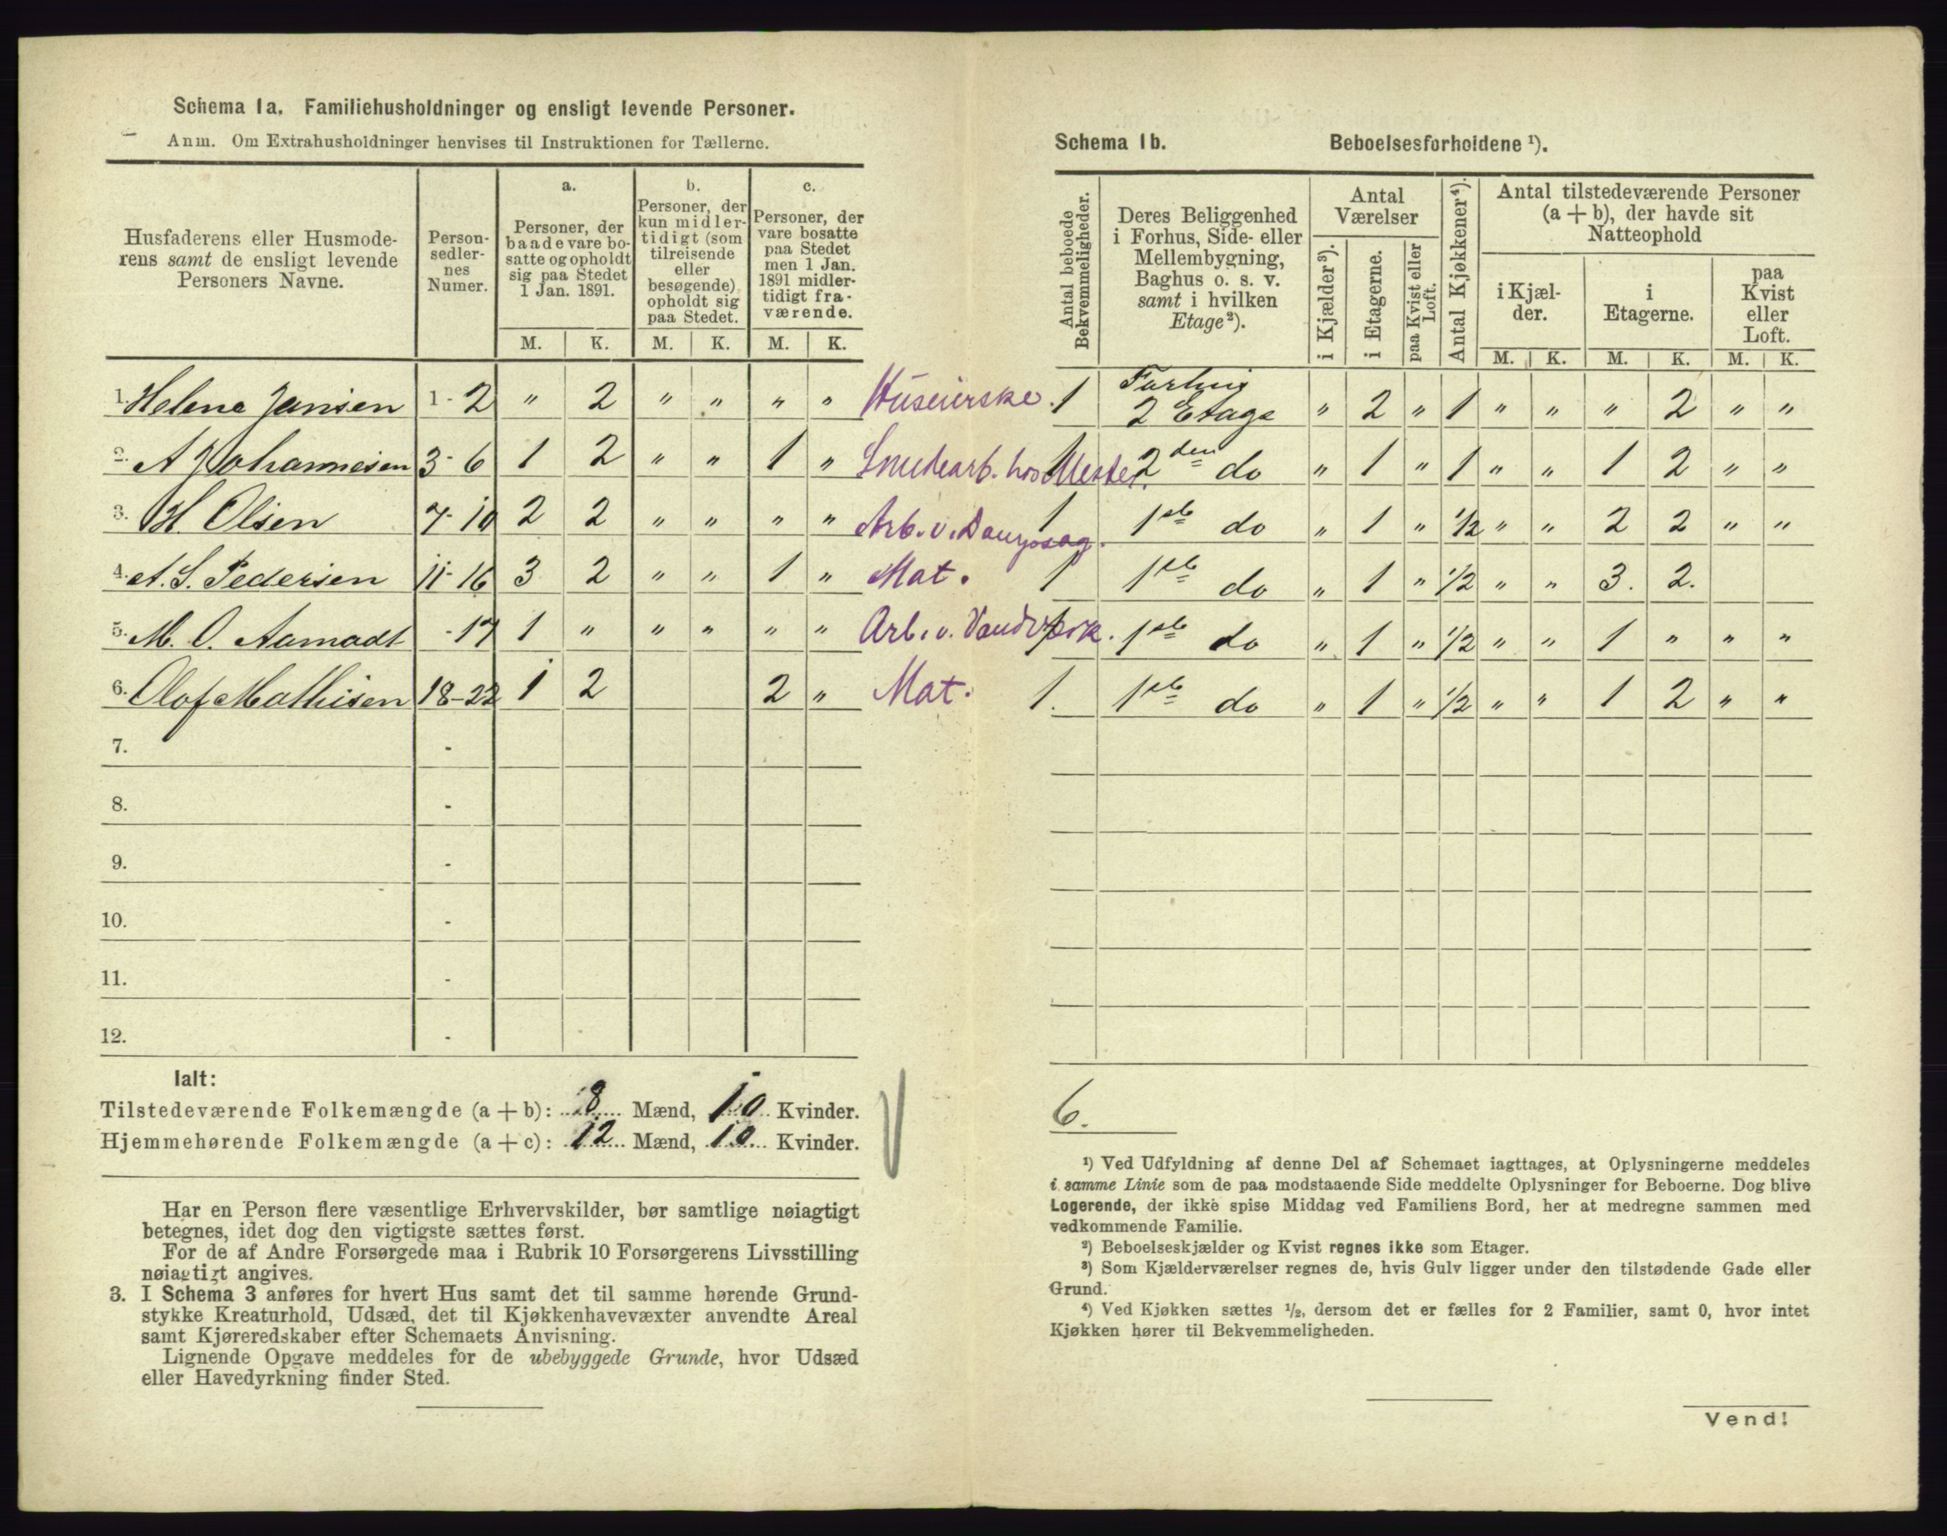 Schema 1a. Familiehusholdninger og ensligt levende Personer.
Anm. Om Extrahusholdninger henvises til Instruktionen for Tællerne.
Husfaderens eller Husmode-
rens samt de ensligt levende
Personers Navne.
Person-
sedler-
nes
Numer.
a.
Personer, der
baade vare bo-
satte og opholdt
sig paa Stedet
1 Jan. 1891.
b.
Personer, der
kun midler-
tidigt (som
tilreisende
eller
besøgende)
opholdt sig
paa Stedet.
c.
Personer, der
vare bosatte
paa Stedet
men 1 Jan.
1891 midler-
tidigt fra-
værende.
M. K. M. K. M. K.
1. Helene Jansen 1 - 2 " 2 " " " " Huseierske.
2. A Johannesen 3 - 6 1 2 " " 1 " Smedearb. hos Mester.
3. H. Olsen 7 - 10 2 2 " " " " Arb. v. Dampsag.
4. A. S. Pedersen 11 - 16 3 2 " " 1 " Mat.
5. M. O. Aamodt - 17 1 " " " " " Arb. v. Vandværk.
6. Olof Mathisen 18 - 22 1 2 2 " Mat.
7. -
8. -
9. -
10. -
11. -
12. -
Ialt:
Tilstedeværende Folkemængde (a + b): 8 Mænd, 10 Kvinder.
Hjemmehørende Folkemængde (a + c): 12 Mænd, 10 Kvinder.
Har en Person flere væsentlige Erhvervskilder, bør samtlige nøiagtigt
betegnes, idet dog den vigtigste sættes først.
For de af Andre Forsørgede maa i Rubrik 10 Forsørgerens Livsstilling
nøiagtigt angives.
3. I Schema 3 anføres for hvert Hus samt det til samme hørende Grund-
stykke Kreaturhold, Udsæd, det til Kjøkkenhavevæxter anvendte Areal
samt Kjøreredskaber efter Schemaets Anvisning.
Lignende Opgave meddeles for de ubebyggede Grunde, hvor Udsæd
eller Havedyrkning finder Sted.
Schema 1b. Beboelsesforholdene ¹).
Antal beboede
Bekvemmeligheder.
Deres Beliggenhed
i Forhus, Side- eller
Mellembygning,
Baghus o. s. v.
samt i hvilken
Etage²).
Antal
Værelser
i Kjælder³).
i Etagerne.
paa Kvist eller
Loft.
Antal Kjøkkener⁴).
Antal tilstedeværende Personer
(a + b), der havde sit
Natteophold
i Kjæl-
der.
i
Etagerne.
paa
Kvist
eller
Loft.
M. K. M. K. M. K.
1 2 Etage " 2 " 1 " " " 2 " "
1 2den do " 1 " 1 " " 1 2 " "
1 1ste do " 1 " 1/2 " " 2 2 " "
1 1ste do " 1 " 1/2 " " 3. 2.
1 1ste do " 1 " 1/2 " " 1 " " "
1. 1ste do " 1 " 1/2 " " 1 2 " "
6.
¹) Ved Udfyldning af denne Del af Schemaet iagttages, at Oplysningerne meddeles
i samme Linie som de paa modstaaende Side meddelte Oplysninger for Beboerne. Dog blive
Logerende, der ikke spise Middag ved Familiens Bord, her at medregne sammen med
vedkommende Familie.
²) Beboelseskjælder og Kvist regnes ikke som Etager.
³) Som Kjælderværelser regnes de, hvis Gulv ligger under den tilstødende Gade eller
Grund.
⁴) Ved Kjøkken sættes ½, dersom det er fælles for 2 Familier, samt 0, hvor intet
Kjøkken hører til Bekvemmeligheden.
Vend!